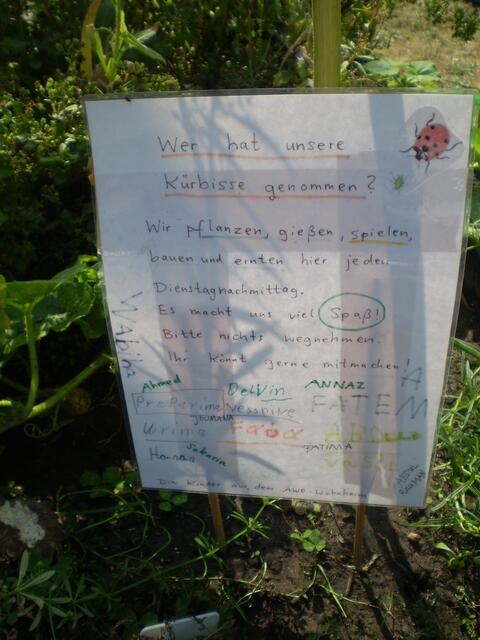 Wer hat unsere
Kürbisse genommen?
Wir pflanzen, gießen, spielen,
bauen und ernten hier jeden
Dienstagnachmittag.
Es macht uns viel Spaß!
Bitte nichts wegnehmen.
Ihr könnt gerne mitmachen!
Ahmed DelVin ANNAZ
FATEM
FATIMA
Sakaria
ABDUL RAHMAN
Die Kinder aus dem AWO-Wohnheim